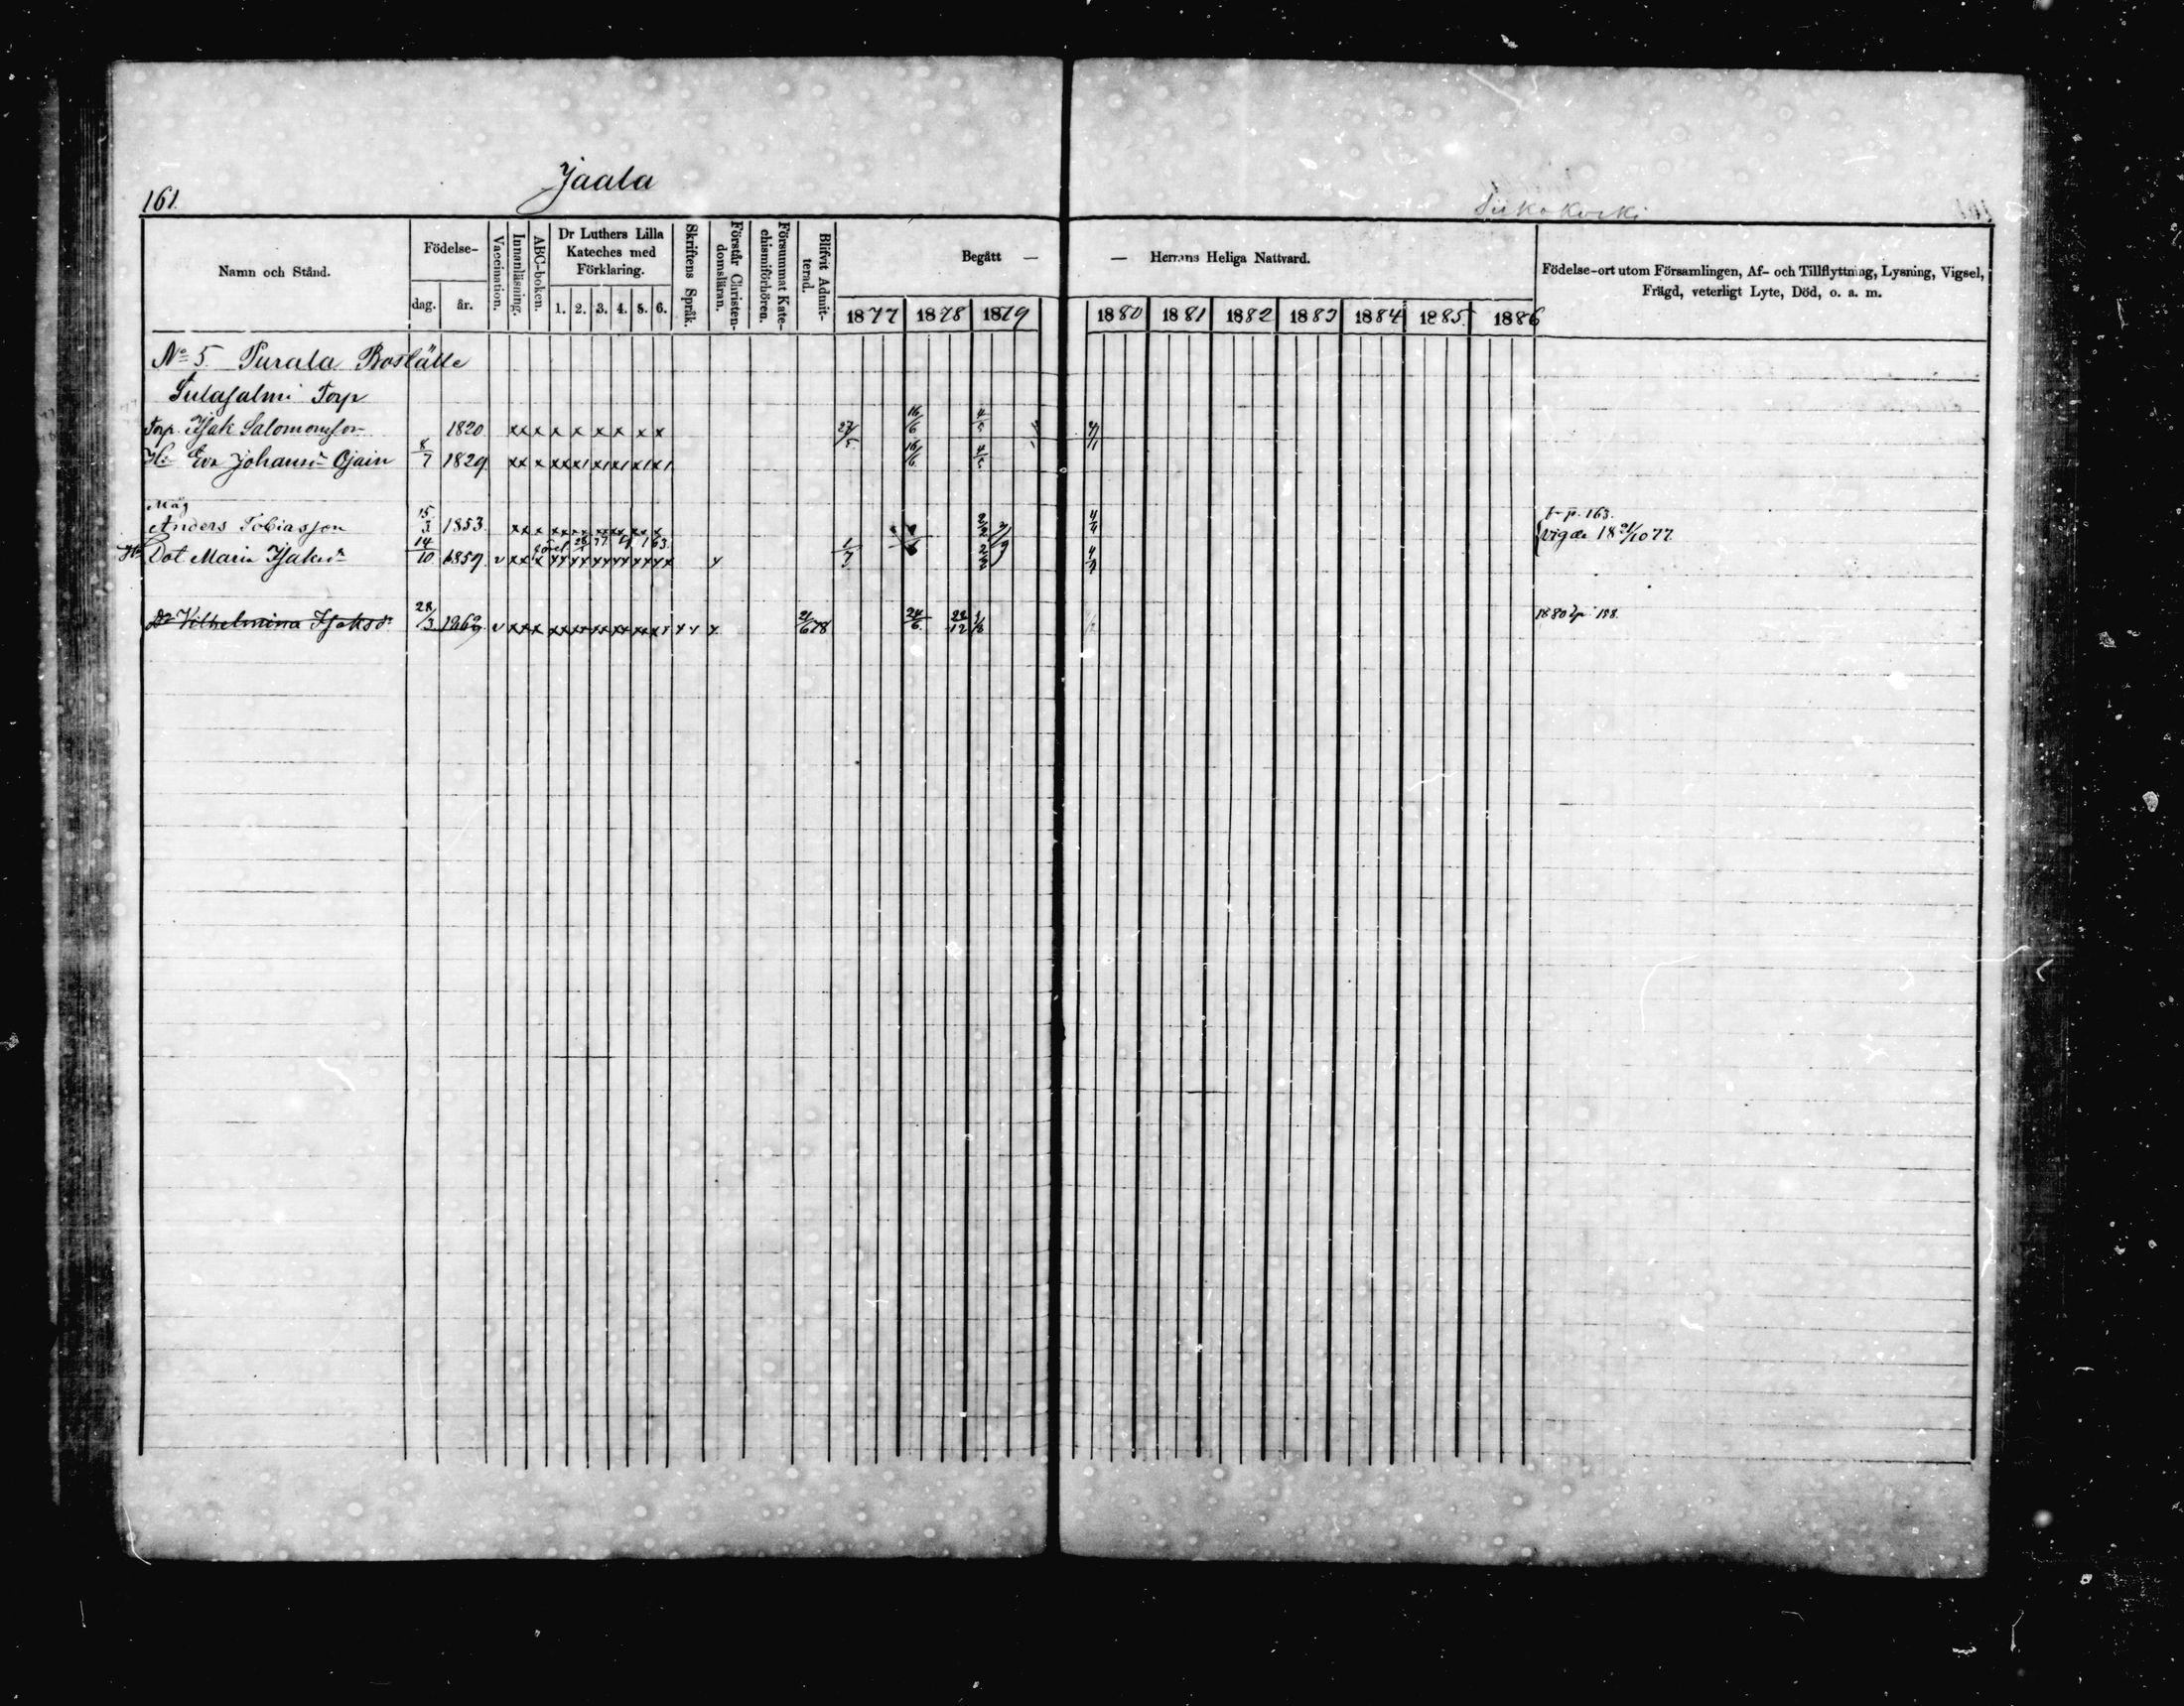 161.
Jaala
Namn och Stånd.
Födelse-
dag.
år.
Vaccination.
Innanläsning.
ABC-boken.
Dr Luthers Lilla
Kateches med
Förklaring.
1. 2. 3. 4. 5. 6.
Skriftens Språk.
Förstår Christen-
domsläran.
Försummat Kate-
chismiförhören.
Blifvit Admit-
terad.
Begått — — Herrans Heliga Nattvard.
1877 1878 1879 1880 1881 1882 1883 1884 1885 1886
Födelse-ort utom Församlingen, Af- och Tillflyttning, Lysning, Vigsel,
Frägd, veterligt Lyte, Död, o. a. m.
No 5 Purala Boställe
Sulasalmi Torp
Torp. Isak Salomonsson 1820 x x x x x x x x x 27/5 16/6
H: Eva Johansdr Ojain 8/7 1829 16/6
Måg
Anders Tobiasson 15/3 1853 fr p. 163.
Dot Maria Isaksdr 14/10 1859 v 1/7 vigde 18 21/10 77
Dr Vilhelmina Isaksdr 28/3 1862 v 21/6 78 24/6 22/12 1880 p. 158.